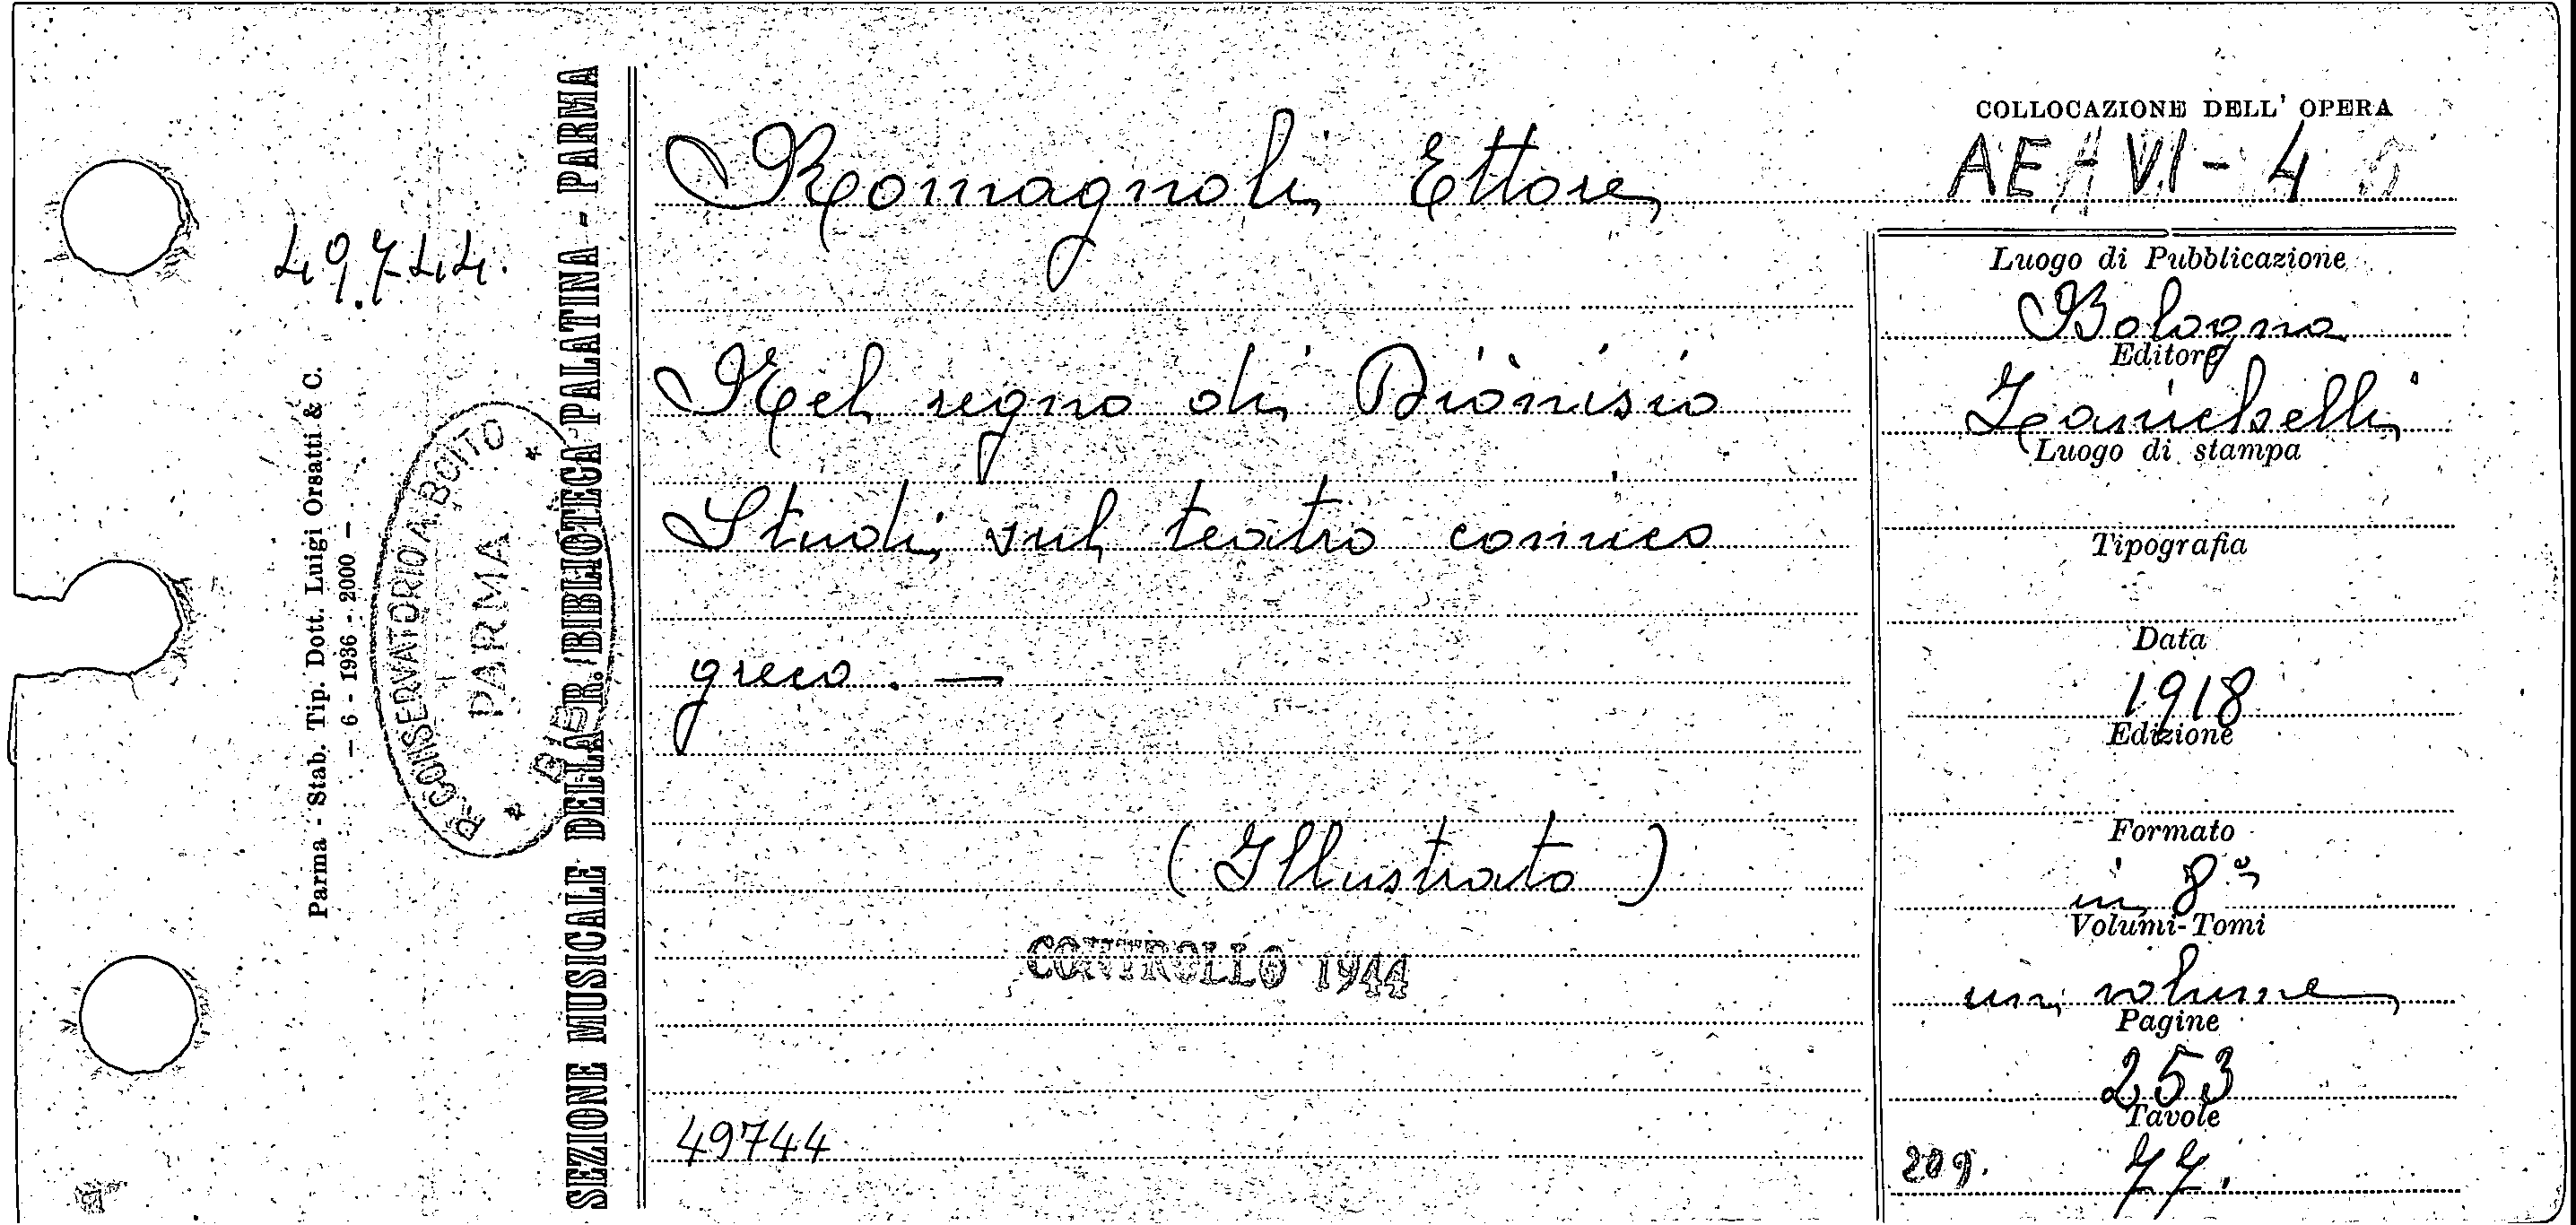 COLLOCAZIONE DELL' OPERA
AE - VI - 4
Romagnoli Ettore
49.744.
Nel regno di Diòniso
Studi sul teatro comico
greco. —
(Illustrato)
CONTROLLO 1944
49744
Luogo di Pubblicazione
Bologna
Editore
Zanichelli
Luogo di stampa
Tipografia
Data
1918
Edizione
Formato
in 8º
Volumi-Tomi
un volume
Pagine
253
Tavole
77.
209.
SEZIONE MUSICALE DELLA R. BIBLIOTECA PALATINA - PARMA
Parma - Stab. Tip. Dott. Luigi Orsatti & C.
— 6 - 1936 - 2000 —
R. CONSERVATORIO A. BOITO
PARMA